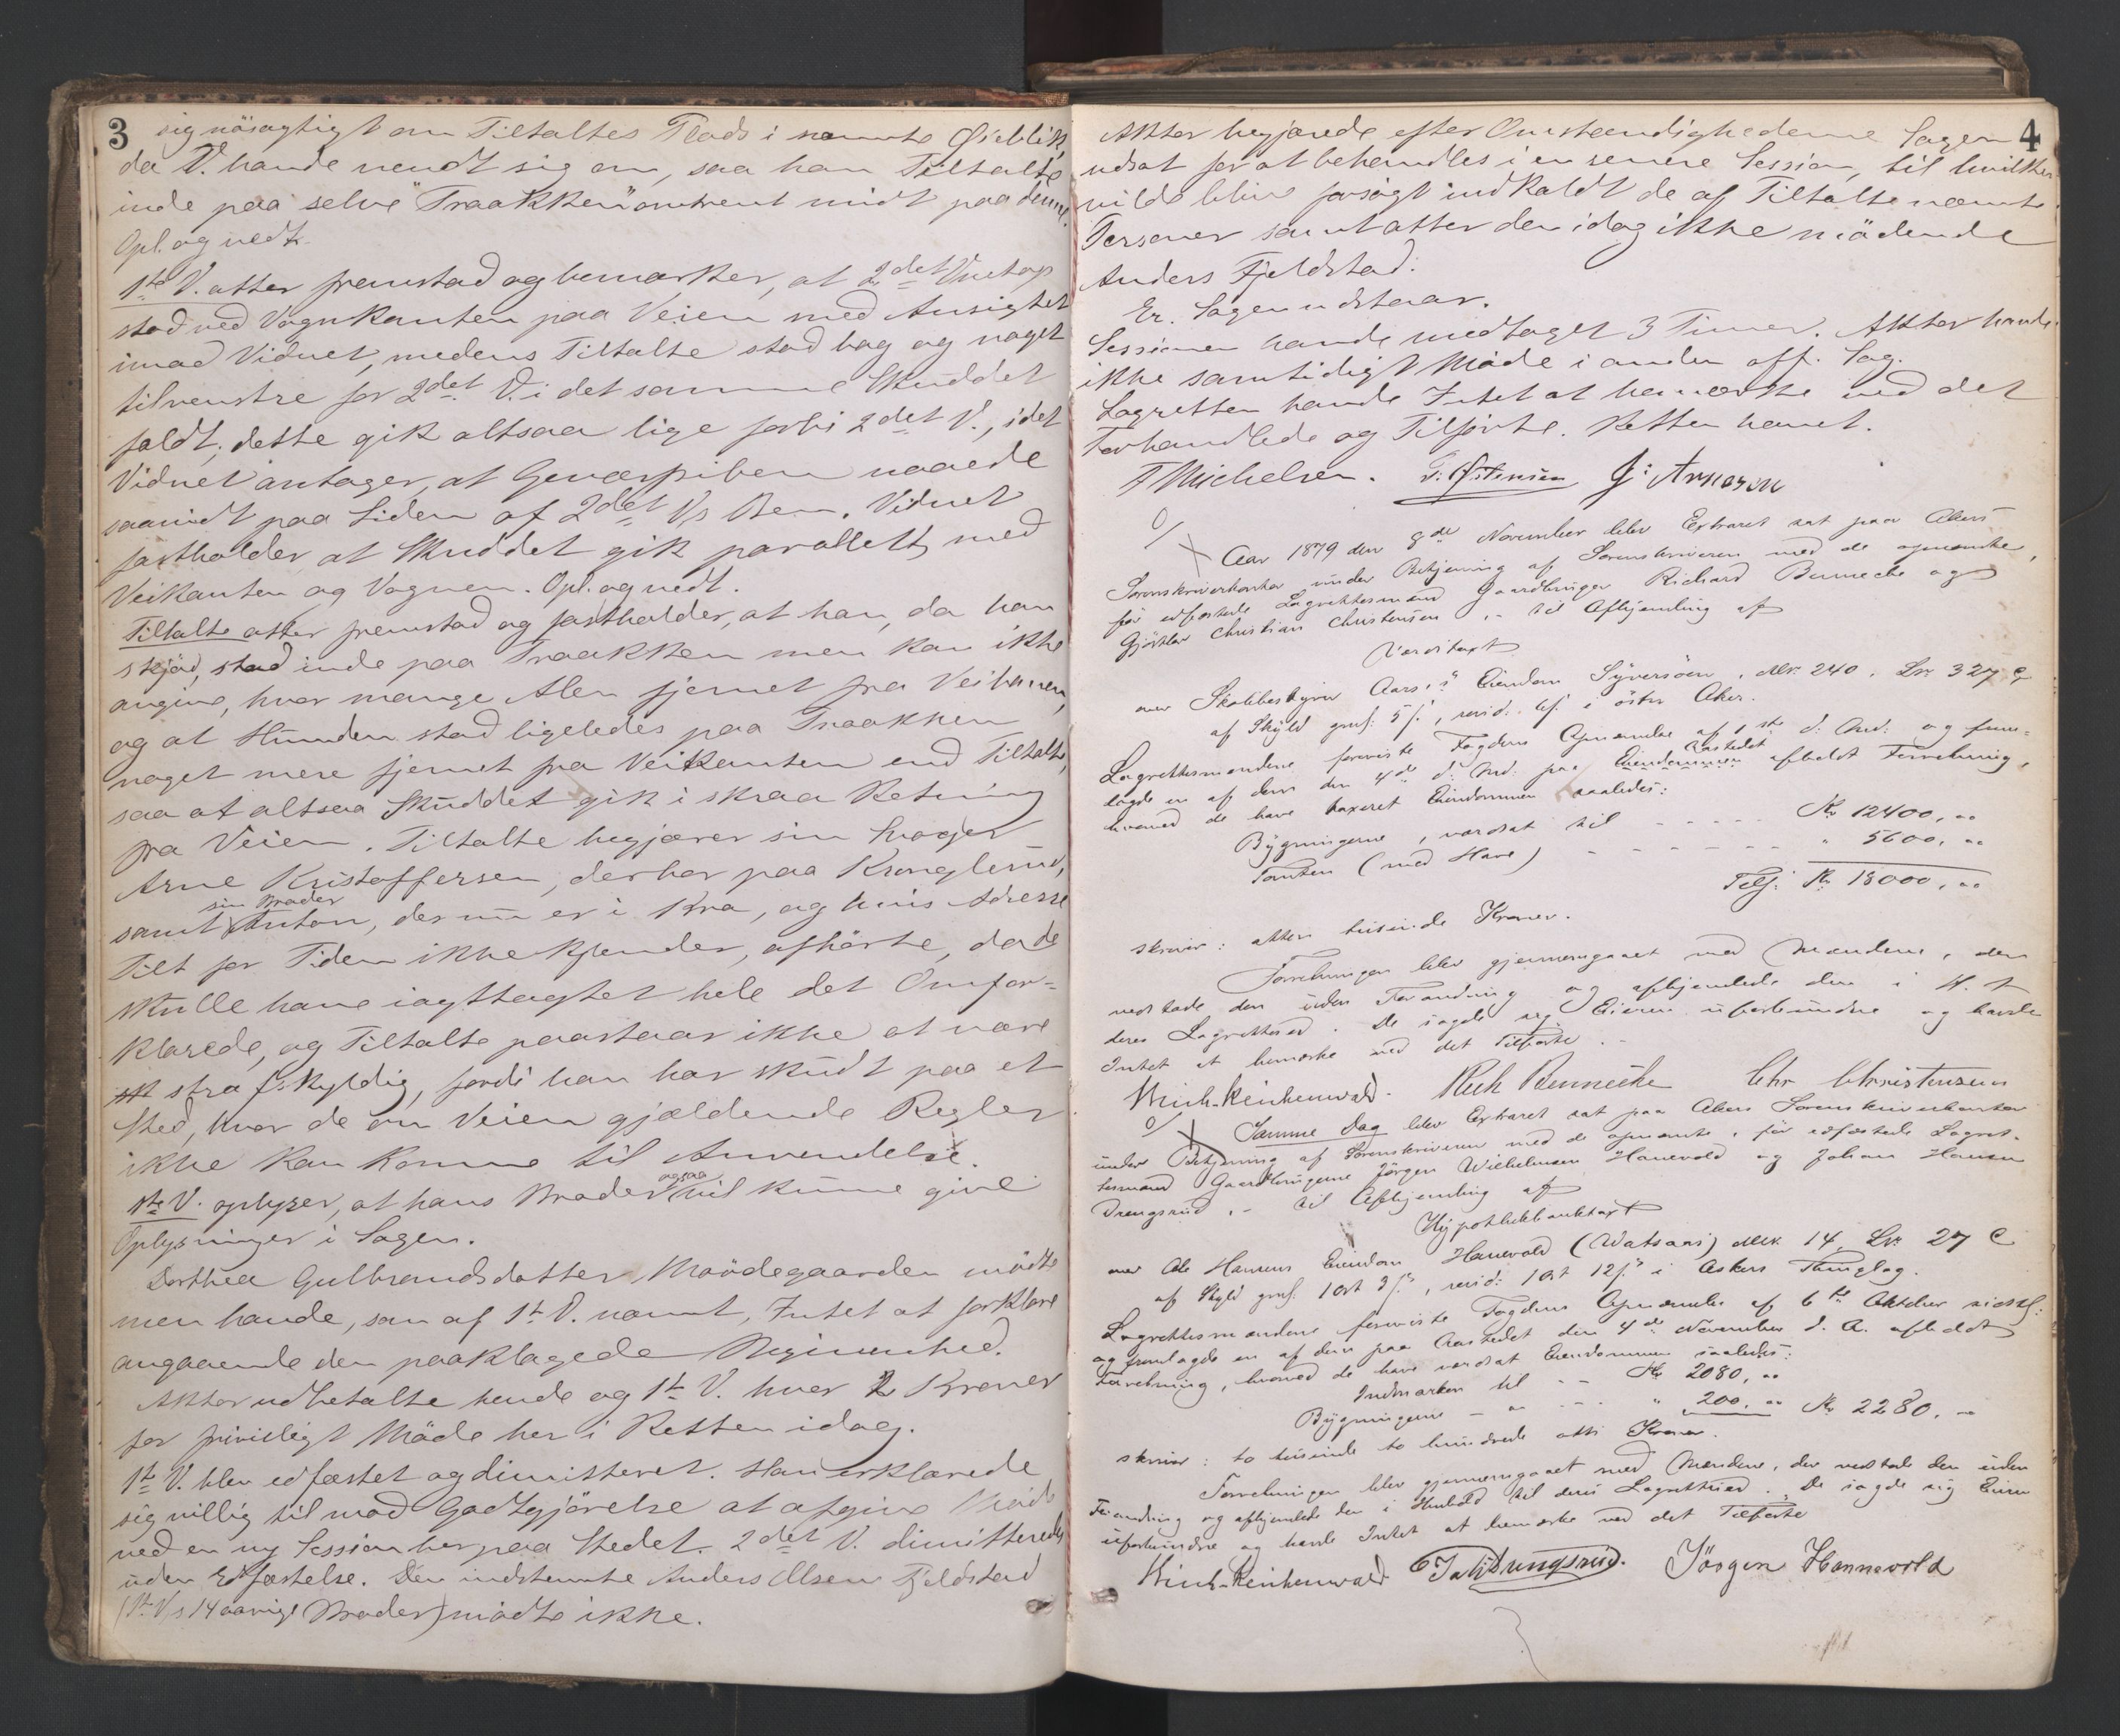 3
sig nöiagtigt om Tiltaltes Plads i nævnte Øieblik,
da V. havde vendt sig om, saa han Tiltalte
inde paa selve "Traakken" omtrent midt paa denne.
Opl. og vedt.
1ste V. atter fremstod og bemærker, at 2det V. netop
stod ved Vognkanten paa Veien med Ansigtet
imod Vidnet, medens Tiltalte stod bag og noget
tilvenstre for 2det V. i det samme Skuddet
faldt; dette gik altsaa lige forbi 2det V., idet
Vidnet antager, at Geværpiben naaede
saavidt paa Siden af 2det V.s Ben. Vidnet
fastholder, at Skuddet gik parallelt med
Veikanten og Vognen. Opl. og vedt.
Tiltalte atter fremstod og fastholder, at han, da han
skjød, stod inde paa Traakken men kan ikke
angive, hvor mange Alen fjernet fra Veibanen,
og at Hunden stod ligeledes paa Traakken
noget mere fjernet fra Veikanten end Tiltalte,
saa at altsaa Skuddet gik i skraa Retning
fra Veien. Tiltalte begjærer sin Svoger
Arne Kristoffersen, der bor paa Kronglerud,
sin Broder
samt Anton, der nu er i Kra, og hvis Adresse
Tilt for Tiden ikke kjender, afhörte, da de
skulle have iagttaget hele det Omfor-
klarede, og Tiltalte paastaar ikke at være
strafskyldig, fordi han har skudt paa et
Sted, hvor de om Veien gjældende Regler
ikke kan komme til Anvendelse.
ogsaa
1ste V. oplyser, at hans Broder vil kunne give
Oplysninger i Sagen.
Dorthea Gulbrandsdatter, Moödegaarden mödte
men havde, som af 1ste V. nævnt, Intet at forklare
angaaende den paaklagede Begivenhed.
Aktor udbetalte hende og 1ste V. hver 2 Kroner
for frivilligt Möde her i Retten idag.
1ste V. blev edfæstet og dimitteret. Han erklærede
sig villig til mod Godtgjörelse at afgive Möde
ved en ny Session her paa Stedet. 2det V. dimitteredes
uden Edfæstelse. Den indstevnte Anders Olsen Fjeldstad
(1ste V.s 14 aarige Broder) mödte ikke.
4
Aktor begjærede efter Omstændighederne Sagen
udsat for at behandles i en senere Session, til hvilken
vilde blive forsögt indkaldt de af Tiltalte nævnte
Personer samt atter den idag ikke mödende
Anders Fjeldstad.
Er. Sagen udstaar.
Sessionen havde medtaget 3 Timer. Aktor havde
ikke samtidigt Möde i anden off. Sag.
Lagretten havde Intet at bemærke ved det
Forhandlede og Tilförte. Retten hævet.
F Michelsen. P. Østensen J. Arnesen
Aar 1879 den 8de November blev Extraret sat paa Akers
Sorenskriverkontor under Betjening af Sorenskriveren med de opnævnte,
för edfæstede Lagrettesmænd Gaardbruger Richard Bennecke og
Gjørtler Christian Christensen, - til Afhjemling af
Værditaxt
over Skolebestyrer Aars's Eiendom Syversøen, Mr. 240, Lr. 327 c
af Skyld grnf. 5 f., revid. 6 f. i östre Aker.
Lagrettesmændene foreviste Fogdens Opnævnelse af 1ste d. Md. og frem-
Aastedet
lagde en af dem den 4de d. Md. paa Eiendommen afholdt Forretning,
hvorved de have taxeret Eiendommen saaledes:
Bygningerne, værdsat til - - - - - Kr 12400, "
Tomten (med Have) - - - - - " 5600, "
Tils. Kr 18000, "
skriver: atten tusinde Kroner.
Forretningen blev gjennemgaaet med Mændene, der
vedtode den uden Forandring og afhjemlede den i H. t.
deres Lagrettesed. De sagde sig Eieren uforbundne og havde
Intet at bemærke ved det Tilførte.
Winch-Reichenwald. Rich Bennecke Chr Christensen
Samme Dag blev Extraret sat paa Akers Sorenskriverkontor
under Betjening af Sorenskriveren med de opnævnte, för edfæstede Lagret-
tesmænd Gaardbrugerne Jörgen Wilhelmsen Hanevold og Johan Hansen
Drengsrud, - til Afhjemling af
Hypothekbanktaxt
over Ole Hansens Eiendom Hanevold (Watsaas) Mr. 14, Lr. 27 c
af Skyld grnf. 1 Ort 3 f., revid. 1 Ort 12 f. i Askers Thinglag.
Lagrettesmændene foreviste Fogdens Opnævnelse af 6te Oktober sidstl.
og fremlagde en af dem paa Aastedet den 4de November d. A. afholdt
Forretning, hvorved de have værdsat Eiendommen saaledes:
Indmarken til - - Kr 2080, "
Bygningerne - " - - " 200, " Kr 2280, "
skriver: to tusinde to hundrede otti Kroner.
Forretningen blev gjennemgaaet med Mændene, der vedtode den uden
Forandring og afhjemlede den i Henhold til deres Lagrettesed. De sagde sig Eieren
uforbundne og havde Intet at bemærke ved det Tilførte
Winch-Reichenwald Joh Drengsrud. Jörgen Hannevold